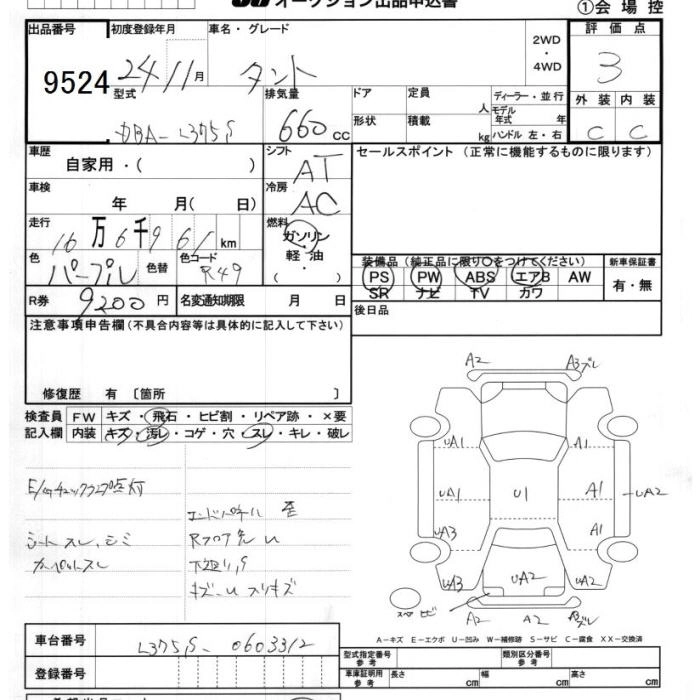 オークション出品申込書
①会場控
出品番号 初度登録年月 車名・グレード 評価点
9524 24 11月 タント 2WD ・ 4WD 3
型式 排気量 ドア 定員 人 ディーラー・並行 外装 内装
DBA-L375S 660cc 形状 積載 kg モデル年式 年 ハンドル 左・右 C C
車歴 シフト セールスポイント (正常に機能するものに限ります)
自家用・( ) AT
車検 冷房
年 月( 日) AC
走行 燃料
16万6千961km ガソリン
軽油
・
色 色替 色コード 装備品 (純正品に限り○をつけてください) 新車保証書
パープル R49 PS PW ABS エアB AW 有・無
SR ナビ TV カワ
R券 9200円 名変通知期限 月 日 後日品
注意事項申告欄 (不具合内容等は具体的に記入して下さい)
修復歴 有 〔箇所 〕
検査員 FW キズ・飛石・ヒビ割・リペア跡・×要
記入欄 内装 キズ・汚レ・コゲ・穴・スレ・キレ・破レ
A2 A3ズレ
UA1 A1
UA1 U1 A1 UA2
UA3 A1
UA3 UA2 UA2
スペア ヒビ
A2 A2 A3ズレ
シートスレ、シミ
カーペットスレ
エンドパネル 歪
下廻リS
A-キズ E-エクボ U-凹み W-補修跡 S-サビ C-腐食 XX-交換済
車台番号 L375S-0603312
登録番号
型式指定番号 参考 類別区分番号 参考
車庫証明用 参考 長さ cm 幅 cm 高さ cm